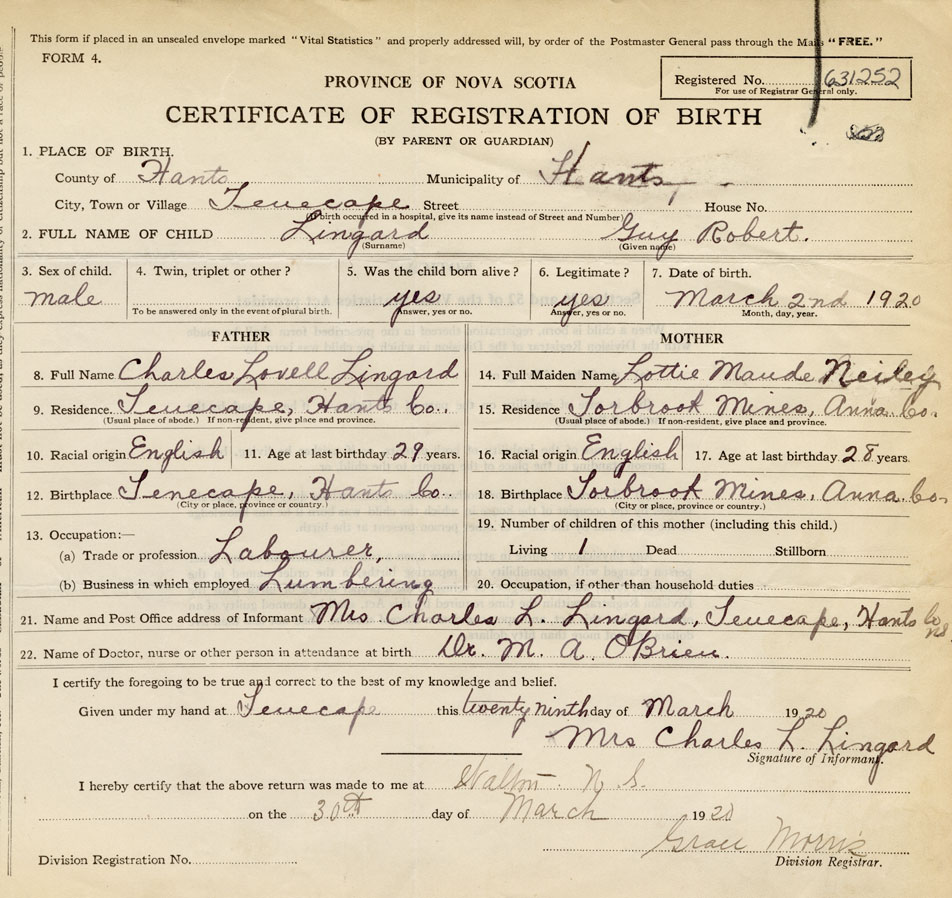 This form if placed in an unsealed envelope marked "Vital Statistics" and properly addressed will, by order of the Postmaster General pass through the Mails "FREE."
FORM 4.
Registered No. 631252
For use of Registrar General only.
PROVINCE OF NOVA SCOTIA
CERTIFICATE OF REGISTRATION OF BIRTH
(BY PARENT OR GUARDIAN)
1. PLACE OF BIRTH.
County of Hants Municipality of Hants
City, Town or Village Tenecape Street House No.
(If birth occurred in a hospital, give its name instead of Street and Number)
2. FULL NAME OF CHILD Lingard Guy Robert.
(Surname) (Given name)
3. Sex of child. 4. Twin, triplet or other? 5. Was the child born alive? 6. Legitimate? 7. Date of birth.
male yes yes March 2nd 1920
To be answered only in the event of plural birth. Answer, yes or no. Answer, yes or no. Month, day, year.
FATHER MOTHER
8. Full Name Charles Lovell Lingard 14. Full Maiden Name Lottie Maude Neiley
9. Residence. Tenecape, Hants Co.. 15. Residence Torbrook Mines, Anna. Co.
(Usual place of abode.) If non-resident, give place and province. (Usual place of abode.) If non-resident, give place and province.
10. Racial origin English 11. Age at last birthday 29 years. 16. Racial origin English 17. Age at last birthday 28 years.
12. Birthplace Tenecape, Hants Co.. 18. Birthplace Torbrook Mines, Anna. Co.
(City or place, province or country.) (City or place, province or country.)
13. Occupation:— 19. Number of children of this mother (including this child.)
(a) Trade or profession Labourer, Living 1 Dead Stillborn
(b) Business in which employed Lumbering 20. Occupation, if other than household duties
21. Name and Post Office address of Informant Mrs Charles L. Lingard, Tenecape, Hants Co NS
22. Name of Doctor, nurse or other person in attendance at birth Dr. M. A. O'Brien.
I certify the foregoing to be true and correct to the best of my knowledge and belief.
Given under my hand at Tenecape this twenty ninth day of March 1920
Mrs Charles L. Lingard
Signature of Informant.
I hereby certify that the above return was made to me at Walton N. S.
on the 30th day of March 1920
Grace Morris
Division Registration No. Division Registrar.